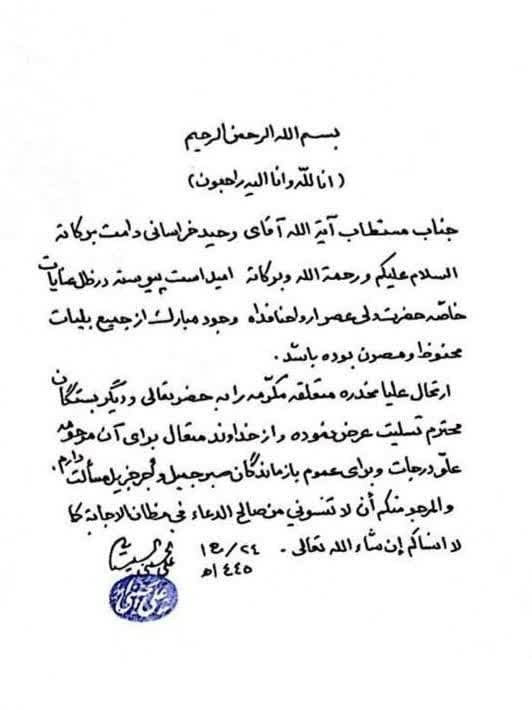 بسم الله الرحمن الرحيم
(انا لله وانا اليه راجعون)
جناب مستطاب آية الله آقای وحید خراسانی دامت برکاته
السلام علیکم ورحمة الله وبرکاته امید است پیوسته در ظل عنایات
خاصّه حضرت ولی عصر ارواحنا فداه وجود مبارک از جمیع بلیات
محفوظ و مصون بوده باشد.
ارتحال علیا مخدره متعلقه مکرّمه را به حضرتعالی و دیگر بستگان
محترم تسلیت عرض نموده و از خداوند متعال برای آن مرحومه
علوّ درجات و برای عموم بازماندگان صبر جمیل و أجر جزیل مسألت دارم.
والمرجو منكم أن لا تنسوني من صالح الدعاء في مظان الاجابة كما
لا انساكم إن شاء الله تعالى. ٢٤/ع١
١٤٤٥هـ
علي الحسيني السيستاني